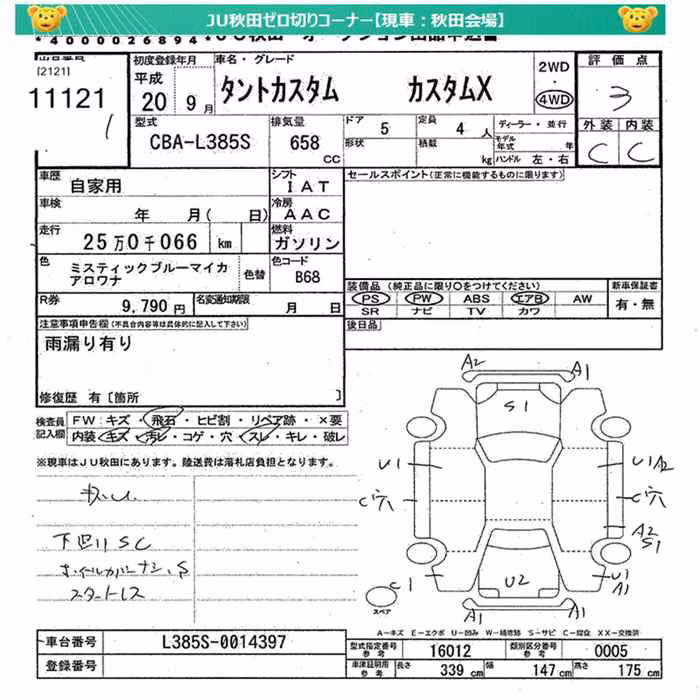 JU秋田ゼロ切りコーナー【現車：秋田会場】
*4000026894*
[2121]
11121
初度登録年月
平成
20 9月
車名・グレード
タントカスタム カスタムX
2WD
・
4WD
評価点
3
型式
CBA-L385S
排気量
658
CC
ドア 5
定員 4人
形状
積載 kg
ディーラー・並行
モデル年式 年
ハンドル 左・右
外装 内装
C C
車歴
自家用
シフト
IAT
セールスポイント(正常に機能するものに限ります)
車検
年 月( 日)
冷房
AAC
走行
25万0千066 km
燃料
ガソリン
色
ミスティックブルーマイカ
アロワナ
色替
色コード
B68
装備品 (純正品に限り○をつけてください)
新車保証書
PS PW ABS エアB AW
SR ナビ TV カワ
有・無
R券
9,790円
名変通知期限
月 日
後日品
注意事項申告欄(不具合内容等は具体的に記入して下さい)
雨漏り有り
修復歴 有〔箇所 〕
検査員記入欄
FW:キズ・飛石・ヒビ割・リペア跡・×要
内装:キズ・汚レ・コゲ・穴・スレ・キレ・破レ
※現車はJU秋田にあります。陸送費は落札店負担となります。
下廻りSC
ホイルカバーナシ、S
スタートレス
A2
A1
S1
U1
U1 A2
C穴
C穴
A2
S1
C1
U2
U1
A1
スペア
A1
A1
A-キズ E-エクボ U-凹み W-補修跡 S-サビ C-腐食 XX-交換済
車台番号
L385S-0014397
型式指定番号
参考
16012
類別区分番号
参考
0005
登録番号
車庫証明用
参考
長さ 339 cm
幅 147 cm
高さ 175 cm